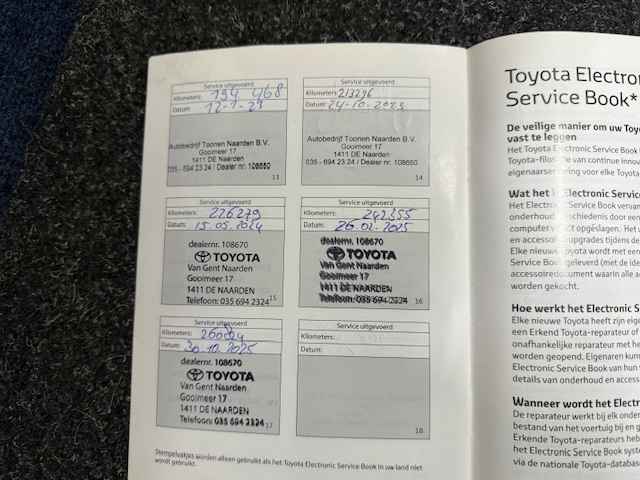 Service uitgevoerd
Kilometers: 194 468
Datum: 12-1-23
Autobedrijf Toonen Naarden B.V.
Gooimeer 17
1411 DE Naarden
035 - 694 23 24 / Dealer nr. 108650
13
Service uitgevoerd
Kilometers: 213296
Datum: 24-10-2023
Autobedrijf Toonen Naarden B.V.
Gooimeer 17
1411 DE Naarden
035 - 694 23 24 / Dealer nr. 108650
14
Service uitgevoerd
Kilometers: 226279
Datum: 15.05.2024
dealernr. 108670
TOYOTA
Van Gent Naarden
Gooimeer 17
1411 DE NAARDEN
Telefoon: 035 694 2324
15
Service uitgevoerd
Kilometers: 242355
Datum: 26.02-2025
dealernr. 108670
TOYOTA
Van Gent Naarden
Gooimeer 17
1411 DE NAARDEN
Telefoon: 035 694 2324
16
Service uitgevoerd
Kilometers:
Datum: 30.10.2025
dealernr. 108670
TOYOTA
Van Gent Naarden
Gooimeer 17
1411 DE NAARDEN
Telefoon: 035 694 2324
17
Service uitgevoerd
Kilometers:
Datum:
18
Stempelvakjes worden alleen gebruikt als het Toyota Electronic Service Book in uw land niet
wordt gebruikt.
Toyota Electron
Service Book*
De veilige manier om uw Toyo
vast te leggen
Het Toyota Electronic Service Book
Toyota-filos van continue innov
eigenaarservaring voor elke Toyota
Wat het Electronic Servic
Het Electron Service Book vervan
onderhoud door een
computer opgeslagen. Het
en accessoi upgrades tijdens de
Elke nieuw Toyota wordt met een
Service Book geleverd (met de ide
accessoiredocument waarin alle
worden gekocht.
Hoe werkt het Electronic S
Elke nieuwe Toyota heeft zijn eige
een Erkend Toyota-reparateur of
onafhankelijke reparateur met he
worden geopend. Eigenaren kun
Electronic Service Book van hun
details van onderhoud en access
Wanneer wordt het Elect
De reparateur werkt bij elk onder
bestand van het voertuig bij en g
Erkende Toyota-reparateurs heb
het Electronic Service Book syst
via de nationale Toyota-databas